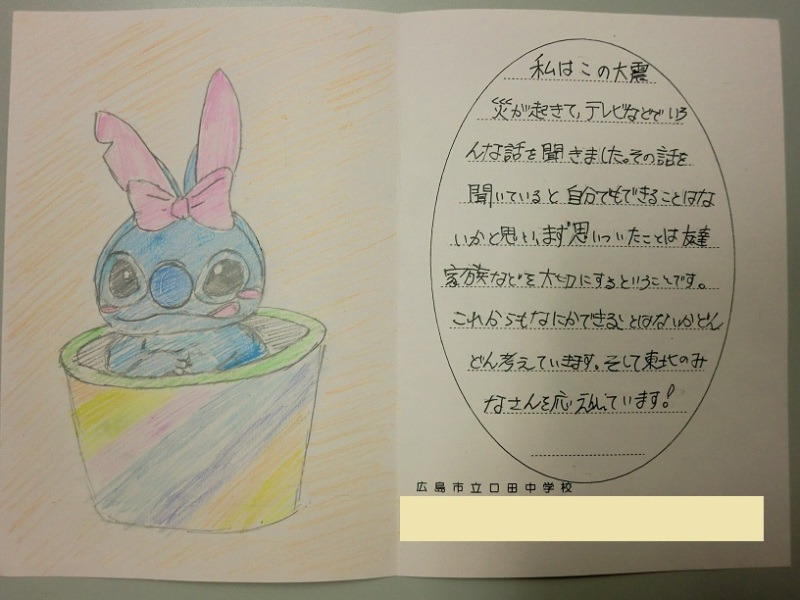 私はこの大震
災が起きて,テレビなどでいろ
んな話を聞きました。その話を
聞いていると自分でもできることはな
いかと思い、まず思いついたことは友達
家族などを大切にするということです。
これからもなにかできることはないかどん
どん考えていきます。そして東北のみ
なさんを応えんしています!
広島市立口田中学校